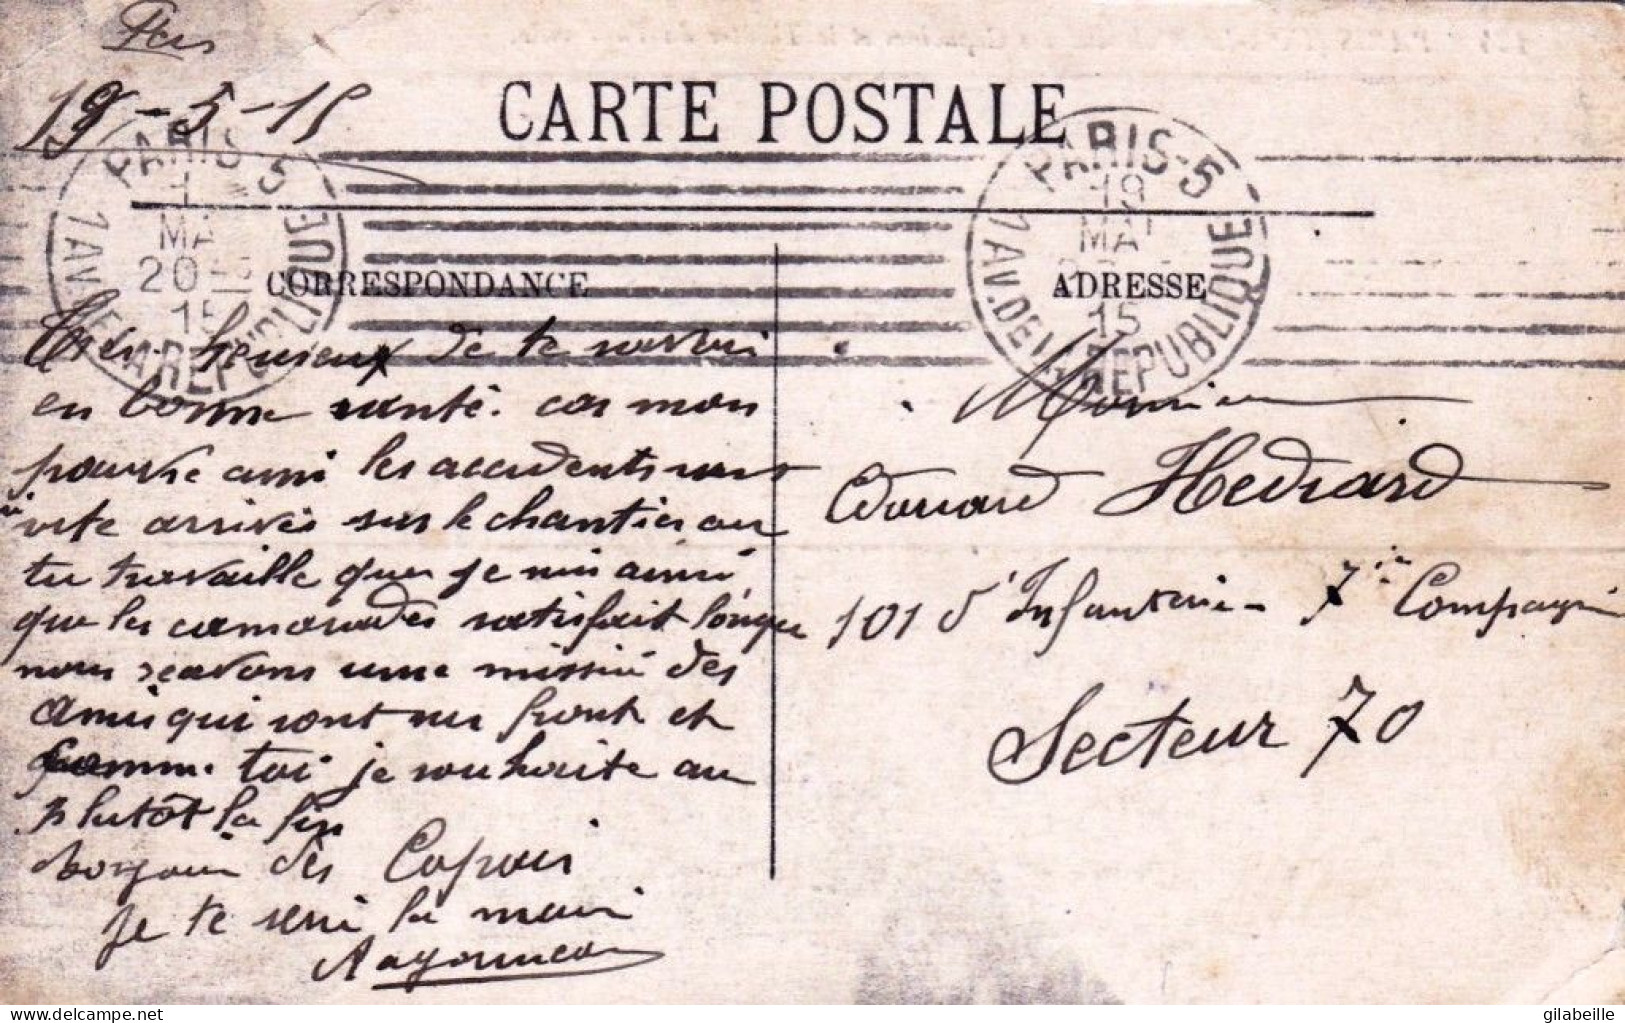 19-5-15
CARTE POSTALE
PARIS-5
MA
20
15
1 AV. DE LA REPUBLIQUE
PARIS-5
19
MAI
15
1 AV. DE LA REPUBLIQUE
CORRESPONDANCE
ADRESSE
Tres heureux de te savoir
en bonne santé. car mon
pauvre ami les accidents sont
vite arrivés sur le chantier ou
tu travaille que je
que les camarades satisfait longue
nous avons une des
amis qui sont au front et
comme toi je souhaite au
plutôt la fin
bonjour des Copais
je te seri la main
Monsieur
Edouard Hediard
101 d'Infanterie 7ie Compagni
Secteur 70
delcampe.net
gilabeille